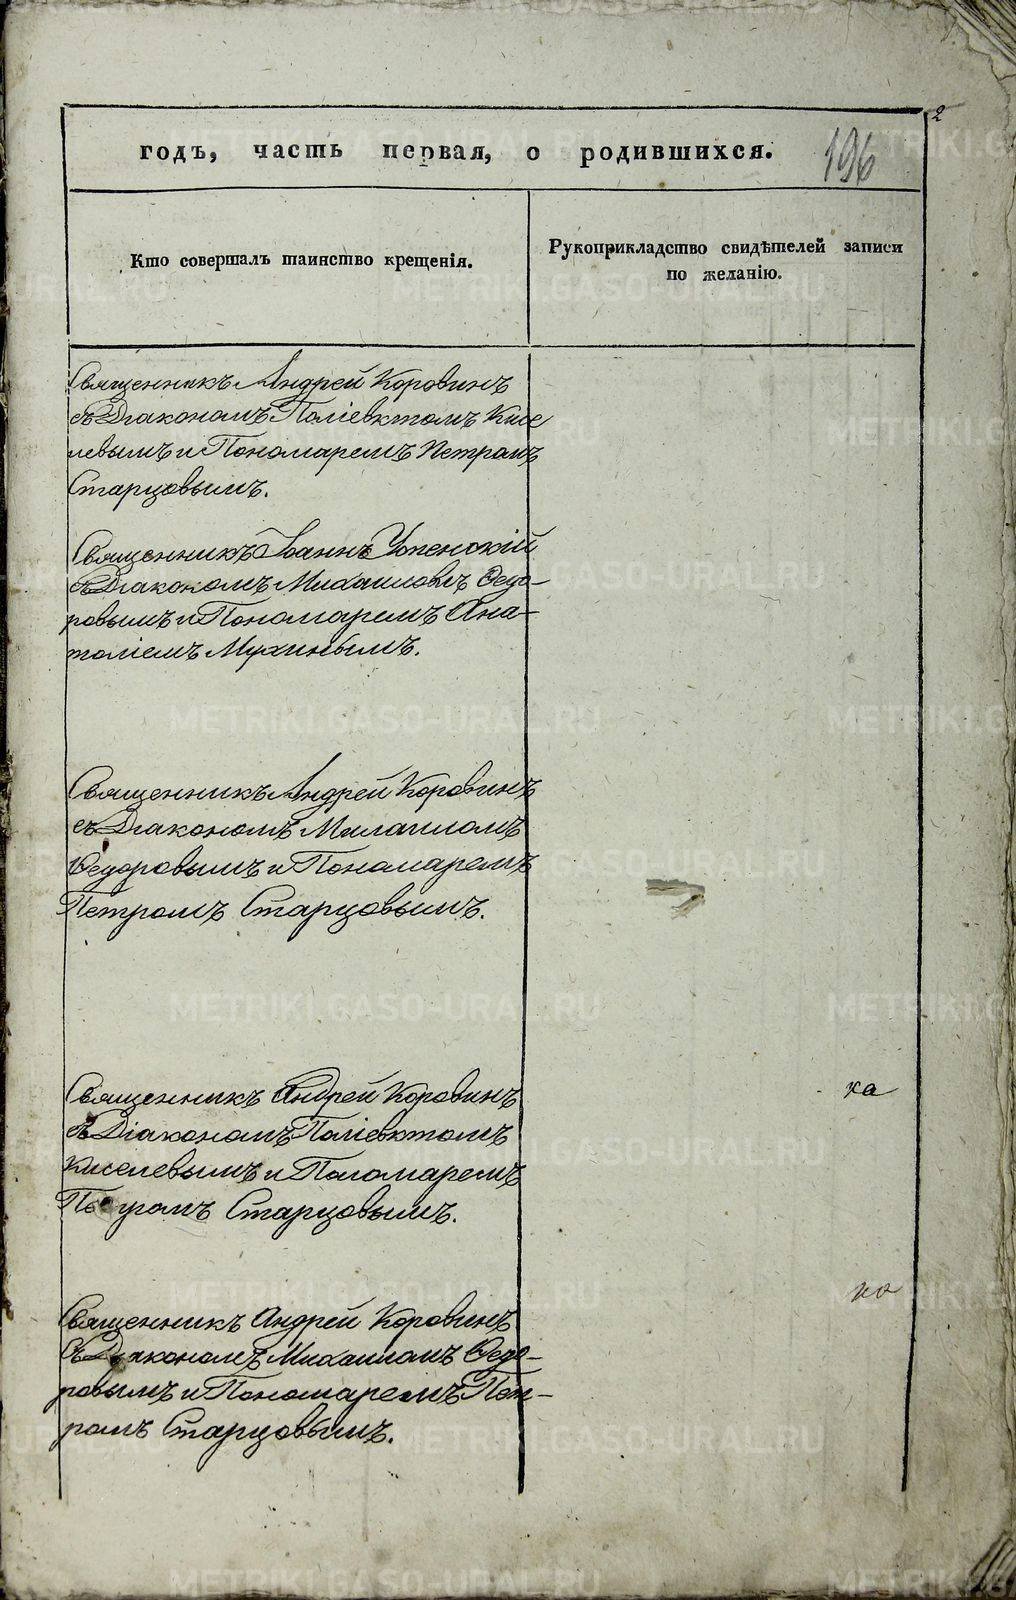 2
годъ, часть первая, о родившихся.
196
Кто совершалъ таинство крещенія.
Рукоприкладство свидѣтелей записи
по желанію.
Священникъ Андрей Коровинъ
съ Діакономъ Поліевктомъ Кисе
левымъ и Пономаремъ Петромъ
Старцовымъ.
Священникъ Іоаннъ Успенскій
съ Діакономъ Михаиломъ Ѳедо-
ровымъ и Пономаремъ Ана-
толіемъ Мухинымъ.
Священникъ Андрей Коровинъ
съ Діакономъ Михаиломъ
Ѳедоровымъ и Пономаремъ
Петромъ Старцовымъ.
Священникъ Андрей Коровинъ
съ Діакономъ Поліевктомъ
Киселевымъ и Пономаремъ
Петромъ Старцовымъ.
ка
Священникъ Андрей Коровинъ
съ Діакономъ Михаиломъ Ѳедо-
ровымъ и Пономаремъ Пет-
ромъ Старцовымъ.
METRIKI.GASO-URAL.RU